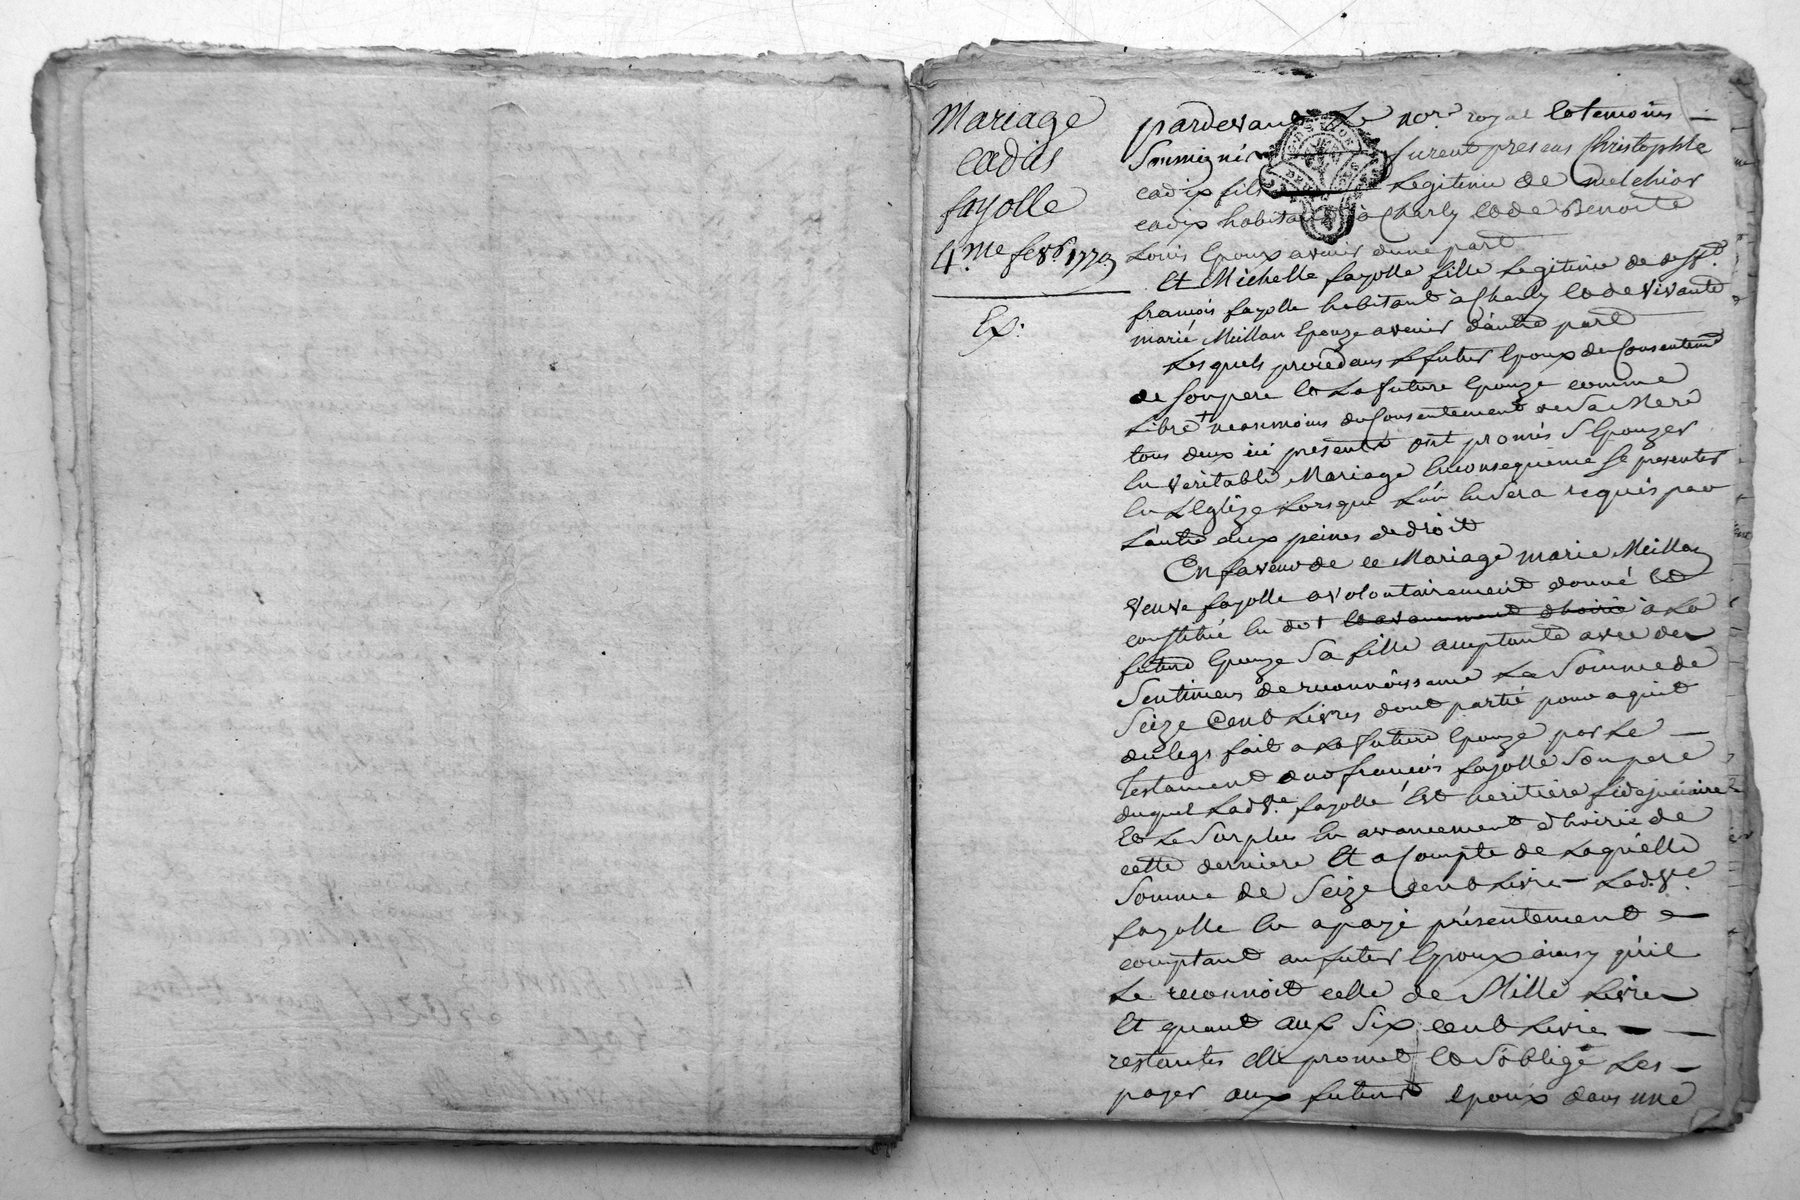 Mariage
cadix
fayolle
4.me fevr 1779
Ex.
pardevant Le nore royal et temoins
Soussignés furent presens Christophle
cadix fils Legitime de melchior
cadix habitant à Charly et de Benoite
Louis Epoux avenir d'une part
Et Michelle fayolle fille Legitime de defft
francois fayolle habitant à Charly et de vivante
marie Meillan Epouze avenir d'autre part
Lesquels procedans Le futur Epoux du Consentement
de son pere et La future Epouze comme
Libre neanmoins du Consentement de Sa Mere
tous deux ici presents ont promis S'Epouzer
En veritable Mariage En consequence se presenter
En L'Eglize Lorsque L'un En Sera requis par
L'autre aux peines de droit
En faveur de ce Mariage marie Meillan
veuve fayolle a volontairement donné et
constitué En dot et avancement d'hoirie à La
future Epouze Sa fille acceptante avec des
Sentimens de reconnoissance La Somme de
Seize Cent Livres dont partie pour aquit
du legs fait a La future Epouze par Le
Testament dud francois fayolle Son pere
duquel Lad ve fayolle Est heritiere fidejuciaire
et Le Surplus En avancement d'hoirie de
cette derniere Et a Compte de Laquelle
Somme de Seize Cent Livres Lad. ve
fayolle En a payé présentement
comptant au futur Epoux ainsy qu'il
Le reconnoit celle de Mille Livres
Et quant aux Six cent Livres
restantes elle promet et S'oblige Les
payer aux futurs Epoux dans une